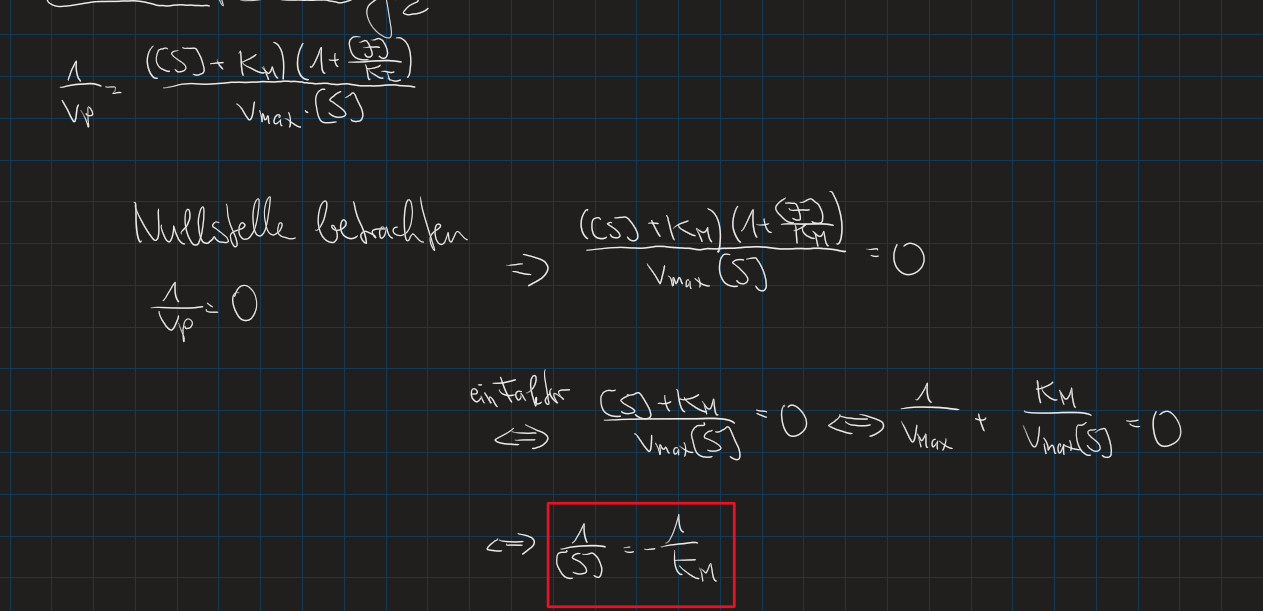 1/Vp = (([S] + KM)(1 + [I]/KI)) / (Vmax · [S])
Nullstelle betrachten
1/Vp = 0
⇒ (([S] + KM)(1 + [I]/KM)) / (Vmax [S]) = 0
ein Faktor
⇔ ([S] + KM) / (Vmax [S]) = 0 ⇔ 1/VMax + KM/(Vmax [S]) = 0
⇔ 1/[S] = - 1/KM